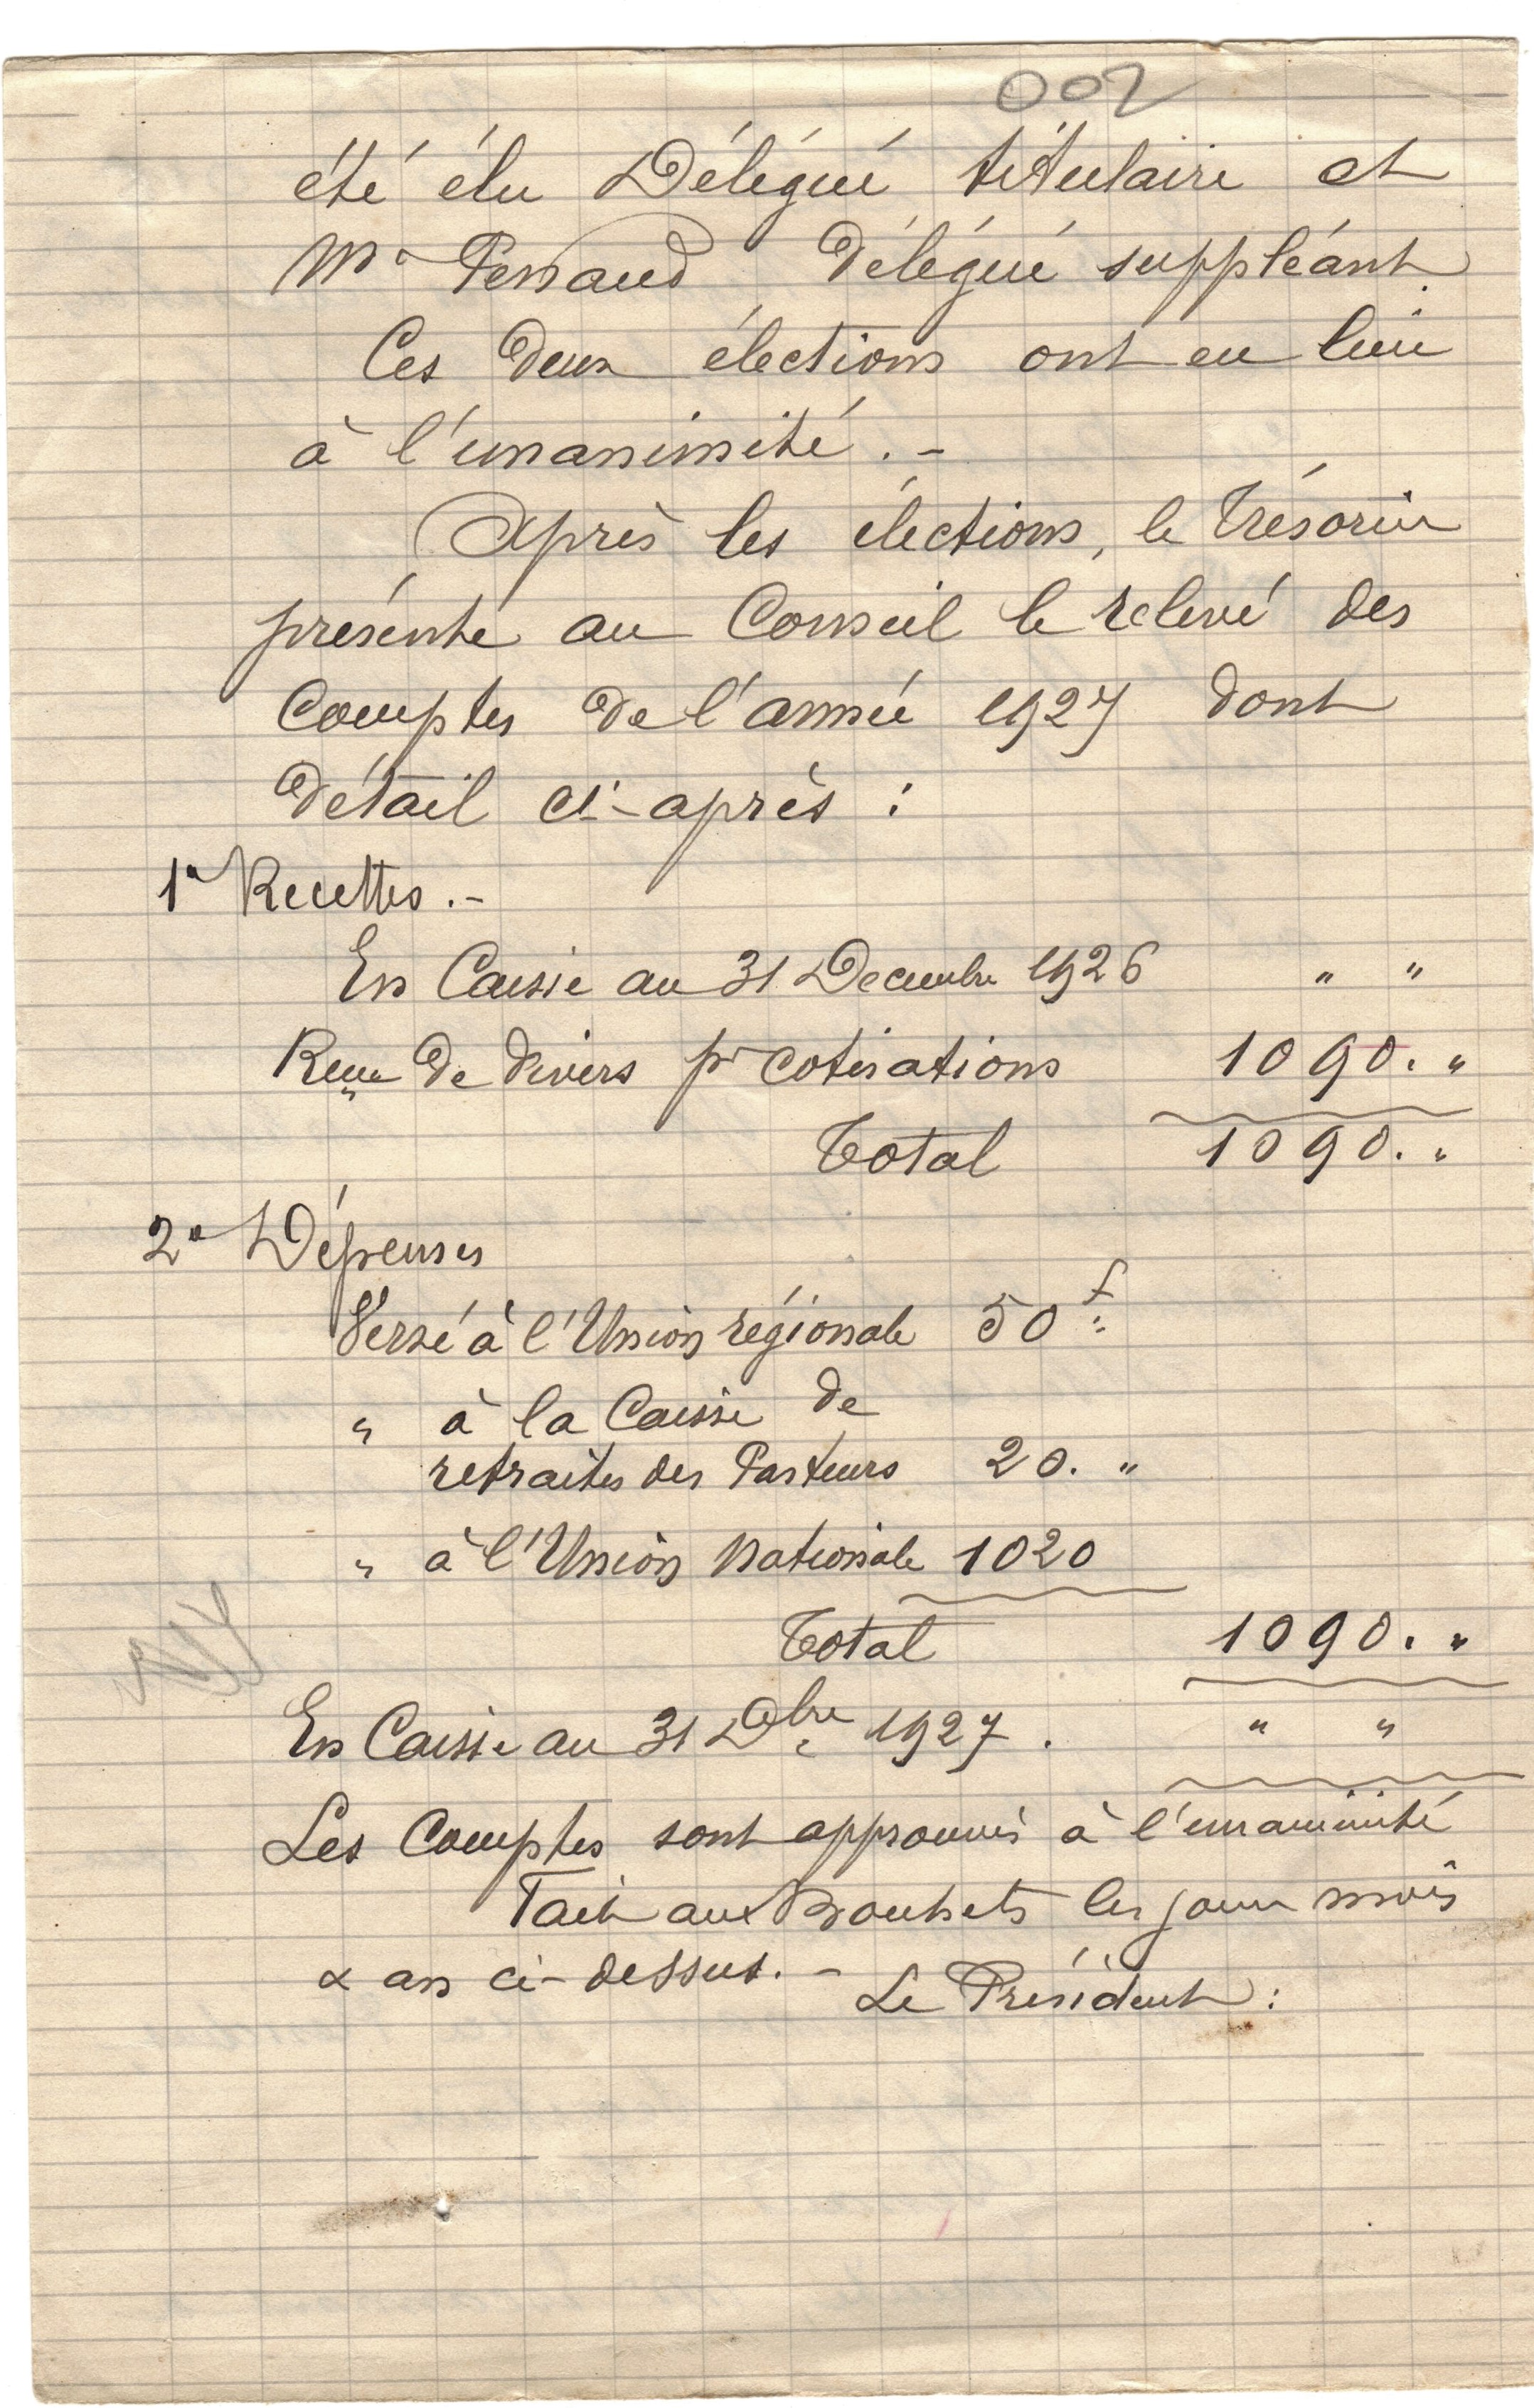 002
été élu Délégué titulaire et
Mr Perraud Délégué suppléant.
Ces deux élections ont eu lieu
à l'unanimité. -
Après les élections, le Trésorier
présente au Conseil le relevé des
Comptes de l'année 1927 dont
détail ci-après :
1° Recettes. -
En Caisse au 31 Decembre 1926 " "
Reçu de divers pr cotisations 1090. "
Total 1090. "
2° Dépenses
Versé à l'Union régionale 50 f "
" à la Caisse de
retraites des Pasteurs 20. "
" à l'Union Nationale 1020
Total 1090. "
En Caisse au 31 Dbre 1927. " "
Les Comptes sont approuvés à l'unanimité
Fait aux Bouhets les jour mois
& an ci-dessus. -
Le Président :